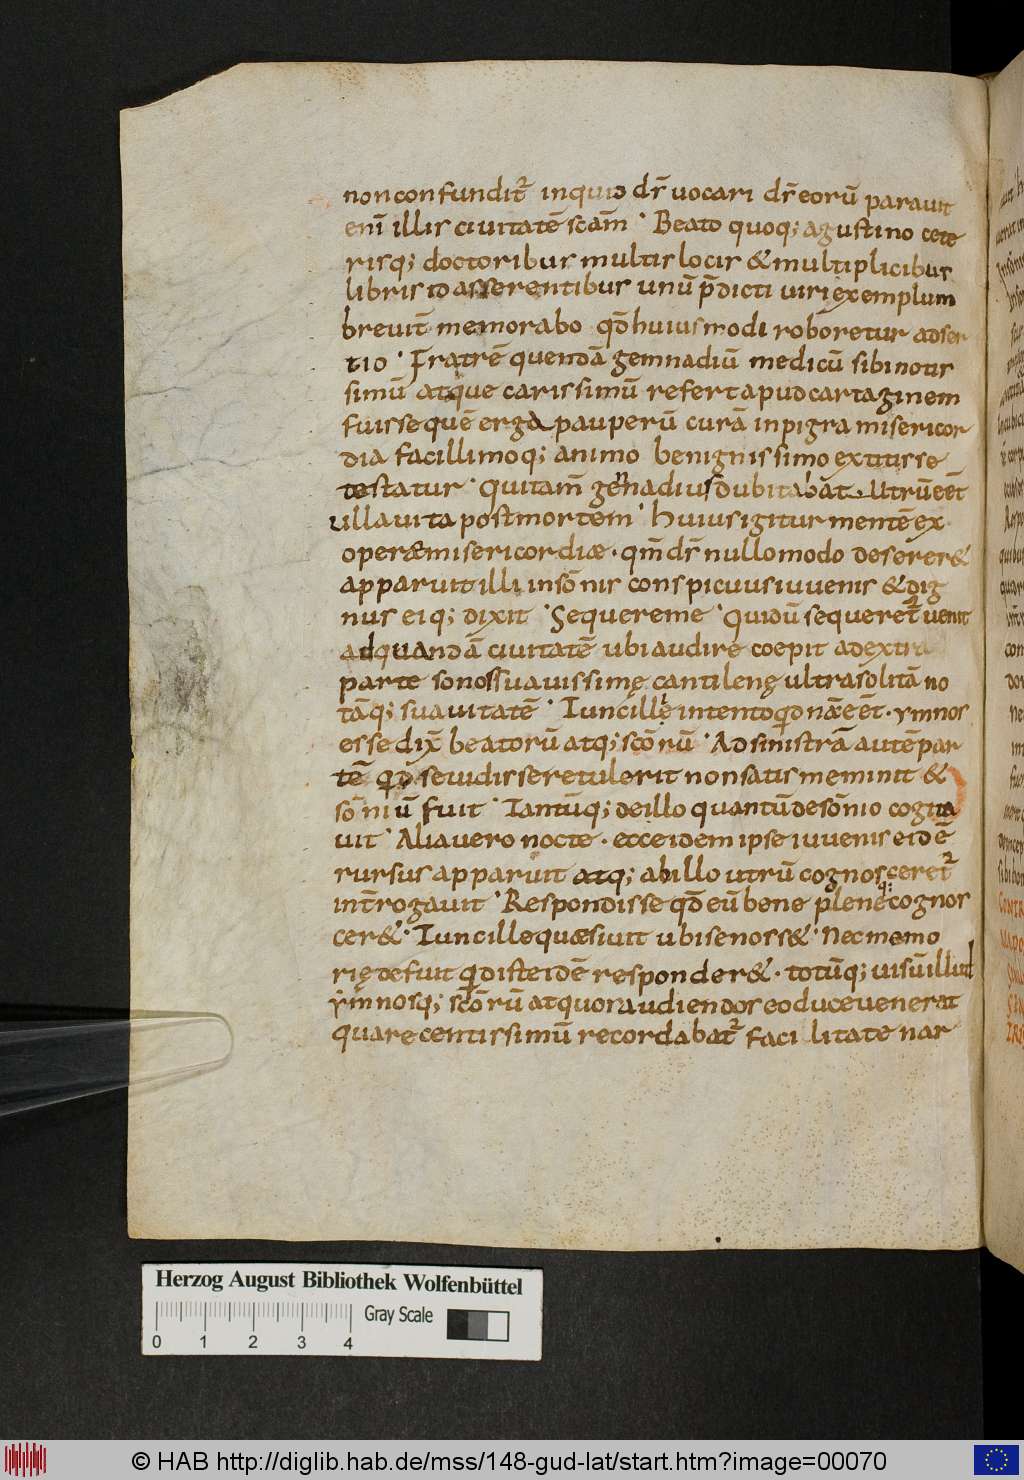 non confunditᷣ inquio dr̄ vocari dr̄ eorū parauit
eni᷑ illis ciuitatē scam̄ · Beato quoq; agustino cete
risq; doctoribus multis locis & multiplicibus
libris id asserentibus unū p̄dicti uiri exemplum
breuit̄ memorabo qd̄ huiusmodi roboretur adser
tio · Fratrē quendā gemnadiū medicū sibi notis
simū atque carissimū refert apud cartaginem
fuisse quē erga pauperū curā inpigra misericor
dia facillimoq; animo benignissimo extitisse
testatur · Qui tam̄ gennadius dubitabat · Utrū eēt
ulla uita post mortem · huius igitur mentē ex
operæ misericordiæ · qm̄ dr̄ nullo modo deserer&
apparuit illi in sōnis conspicuus iuuenis & dig
nus eiq; dixit · Sequere me · Quidū sequeret̄ uenit
ad quandā ciuitatē ubi audire coepit a dextra
parte sonos suauissimę cantilenę ultra solitā no
tāq; suauitatē · Tunc illę intento qd nā eēt · ymnos
esse dix̄ beatorū atq; scōrū · Ad sinistrā autē par
tē qd se uidisse retulerit non satis memini &
sōniū fuit · Tantūq; de illo quantū de sōnio cogita
uit · Alia uero nocte · ecce idem ipse iuuenis eidē
rursus apparuit atq; ab illo utrū cognosceretᷣ
int̄rogauit · Respondisse qd̄ eū bene pleneq; cognos
cer& · Tunc ille quæsiuit ubi se noss& · Nec memo
rię defuit qd iste idē responder& · totūq; uisū illud
ymnosq; scōrū at quor audiendos eo duce uenerat
qua recentissimū recordabatᷣ facilitate nar
Herzog August Bibliothek Wolfenbüttel
Gray Scale
0 1 2 3 4
© HAB http://diglib.hab.de/mss/148-gud-lat/start.htm?image=00070